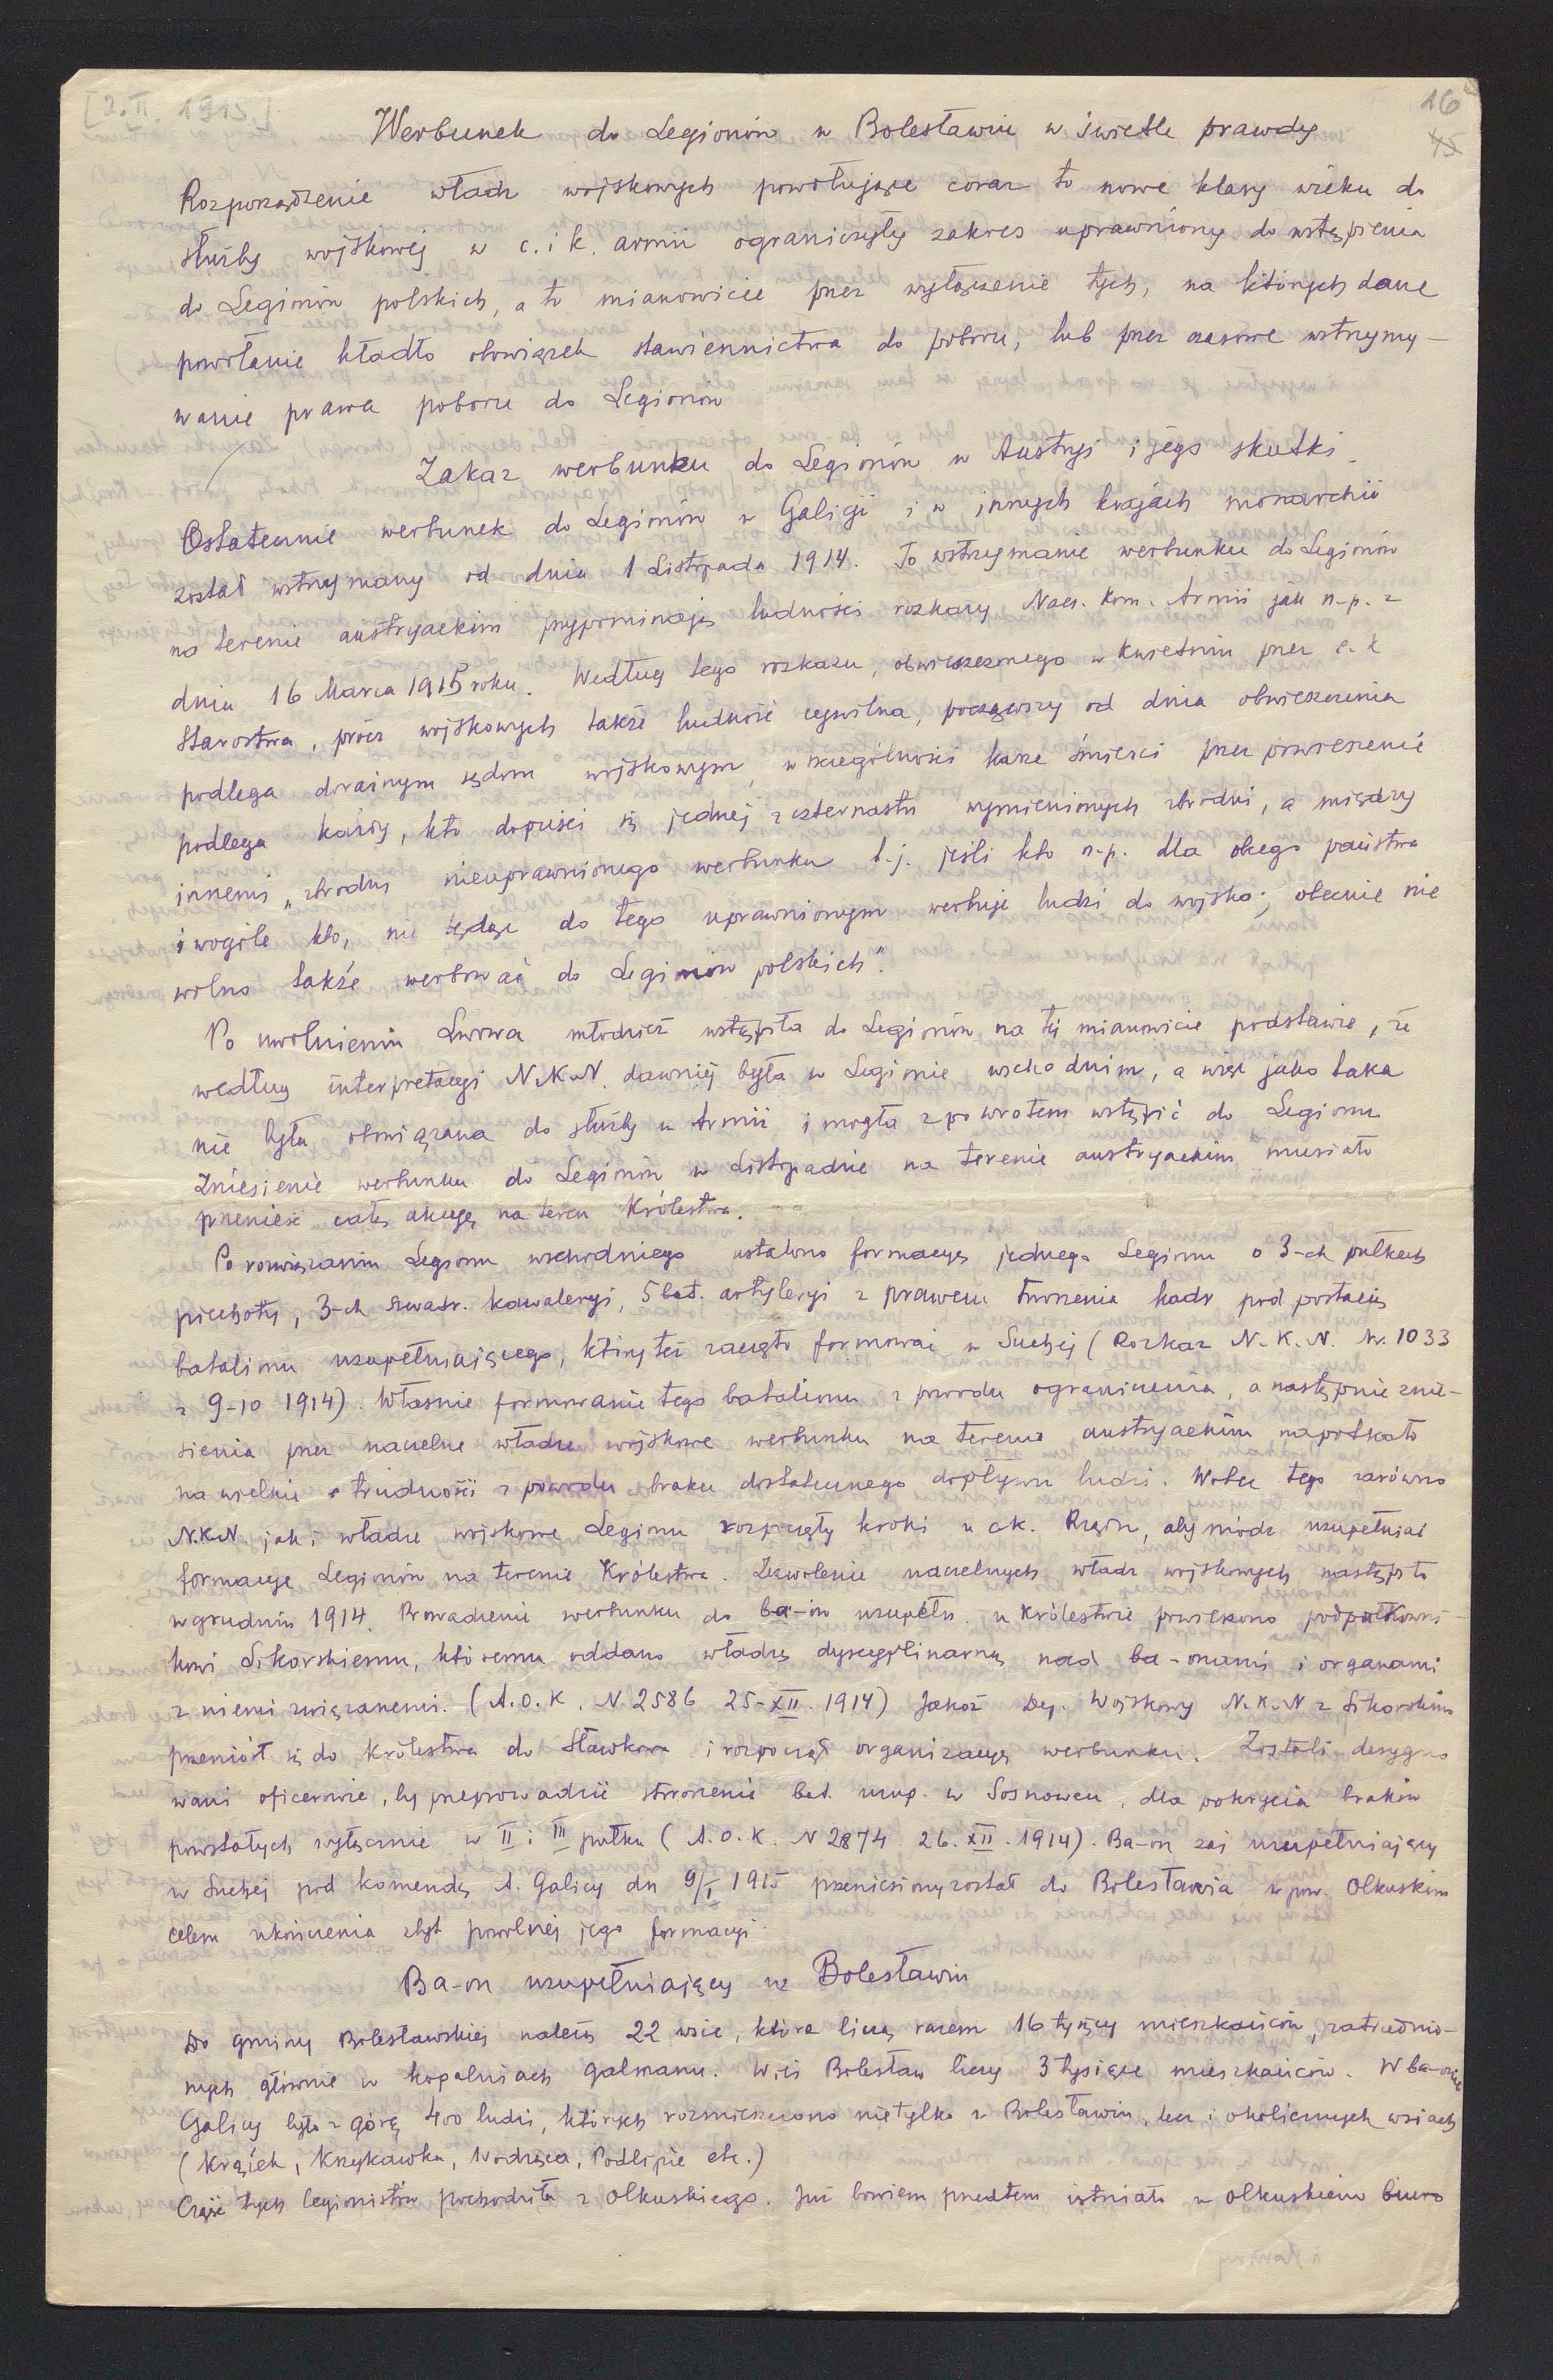 [2.II. 1915]
16
45
Werbunek do Legionów w Bolesławiu w świetle prawdy
Rozporządzenie władz wojskowych powołujące coraz to nowe klasy wieku do
służby wojskowej w c. i k. armii ograniczyły zakres uprawniony do wstąpienia
do Legionów polskich, a to mianowicie przez wyłączenie tych, na których dane
powołanie kładło obowiązek stawiennictwa do poboru, lub przez czasowe wstrzymy-
wanie prawa poboru do Legionów
Zakaz werbunku do Legionów w Austryi i jego skutki.
Ostatecznie werbunek do Legionów w Galicji i w innych krajach monarchii
został wstrzymany od dnia 1 Listopada 1914. To wstrzymanie werbunku do Legionów
na terenie austryackim przypominają ludności rozkazy Nacz. Kom. Armii jak n.p. z
dnia 16 Marca 1915 roku. Według tego rozkazu, obwieszczonego w Kwietniu przez c. k
Starostwa, prócz wojskowych także ludność cywilna, począwszy od dnia obwieszczenia
podlega doraźnym sądom wojskowym, w szczególności karze śmierci przez powieszenie
podlega każdy, kto dopuści się jednej z czternastu wymienionych zbrodni, a między
innemi „zbrodni nieuprawnionego werbunku t.j. jeśli kto n.p. dla obcego państwa
i wogóle kto, nie będąc do tego uprawnionym werbuje ludzi do wojska; obecnie nie
wolno także werbować do Legionów polskich".
Po uwolnieniu Lwowa młodzież wstąpiła do Legionów na tej mianowicie podstawie, że
według interpretacyi N.K.N. dawniej była w Legionie wschodnim, a więc jako taka
nie była obowiązana do służby w Armii i mogła zpowrotem wstąpić do Legionu
Zniesienie werbunku do Legionów w Listopadzie na terenie austryackim musiało
przenieść całą akcyę na teren Królestwa.
Po rozwiązaniu Legionu wschodniego ustalono formacyę jednego Legionu o 3-ch pułkach
piechoty, 3-ch szwadr. kawaleryi, 5 bat. artyleryi z prawem tworzenia kadr pod postacią
batalionu uzupełniającego, który też zaczęto formować w Suchej (Rozkaz N.K.N. Nr. 1033
z 9-10 1914). Własnie formowanie tego batalionu z powodu ograniczenia, a następnie znie-
sienia przez naczelne władze wojskowe werbunku na terenie austryackim napotkało
na wielkie trudności z powodu braku dostatecznego dopływu ludzi. Wobec tego zarówno
N.K.N. jak i władze wojskowe Legionu rozpoczęły kroki u ck. Rządu, aby módz uzupełniać
formacye Legionów na terenie Królestwa. Zezwolenie naczelnych władz wojskowych nastąpiło
w grudniu 1914. Prowadzenie werbunku do ba-ów uzupełn. w Królestwie powierzono podpułkowni-
kowi Sikorskiemu, któremu oddano władzę dyscyplinarną nad ba-onami i organami
z niemi związanemi. (A.O.K. N 2586 25-XII. 1914) Jakoż Dep. Wojskowy N.K.N z Sikorskim
przeniósł się do Królestwa do Sławkowa i rozpoczął organizacyę werbunku. Zostali desygno
wani oficerowie, by przeprowadzić stworzenie bat. uzup. w Sosnowcu, dla pokrycia braków
powstałych wyłącznie w II i III pułku (A.O.K. N 2874 26.XII.1914). Ba-on zaś uzupełniający
w Suchej pod komendą A. Galicy dn 9/I 1915 przeniesiony został do Bolesławia w pow. Olkuskim
celem ukończenia zbyt powolnej jego formacyi.
Ba-on uzupełniający w Bolesławiu
Do gminy Bolesławskiej należą 22 wsie, które liczą razem 16 tysięcy mieszkańców, zatrudnio-
nych głównie w kopalniach galmanu. Wieś Bolesław liczy 3 tysiące mieszkańców. W ba-onie
Galicy było z górą 400 ludzi, których rozmieszczono nietylko w Bolesławiu, lecz i okolicznych wsiach
(Krążek, Krzykawka, Wodząca, Podlipie etc.)
Część tych legionistów pochodziła z Olkuskiego. Już bowiem przedtem istniało w Olkuskiem biuro